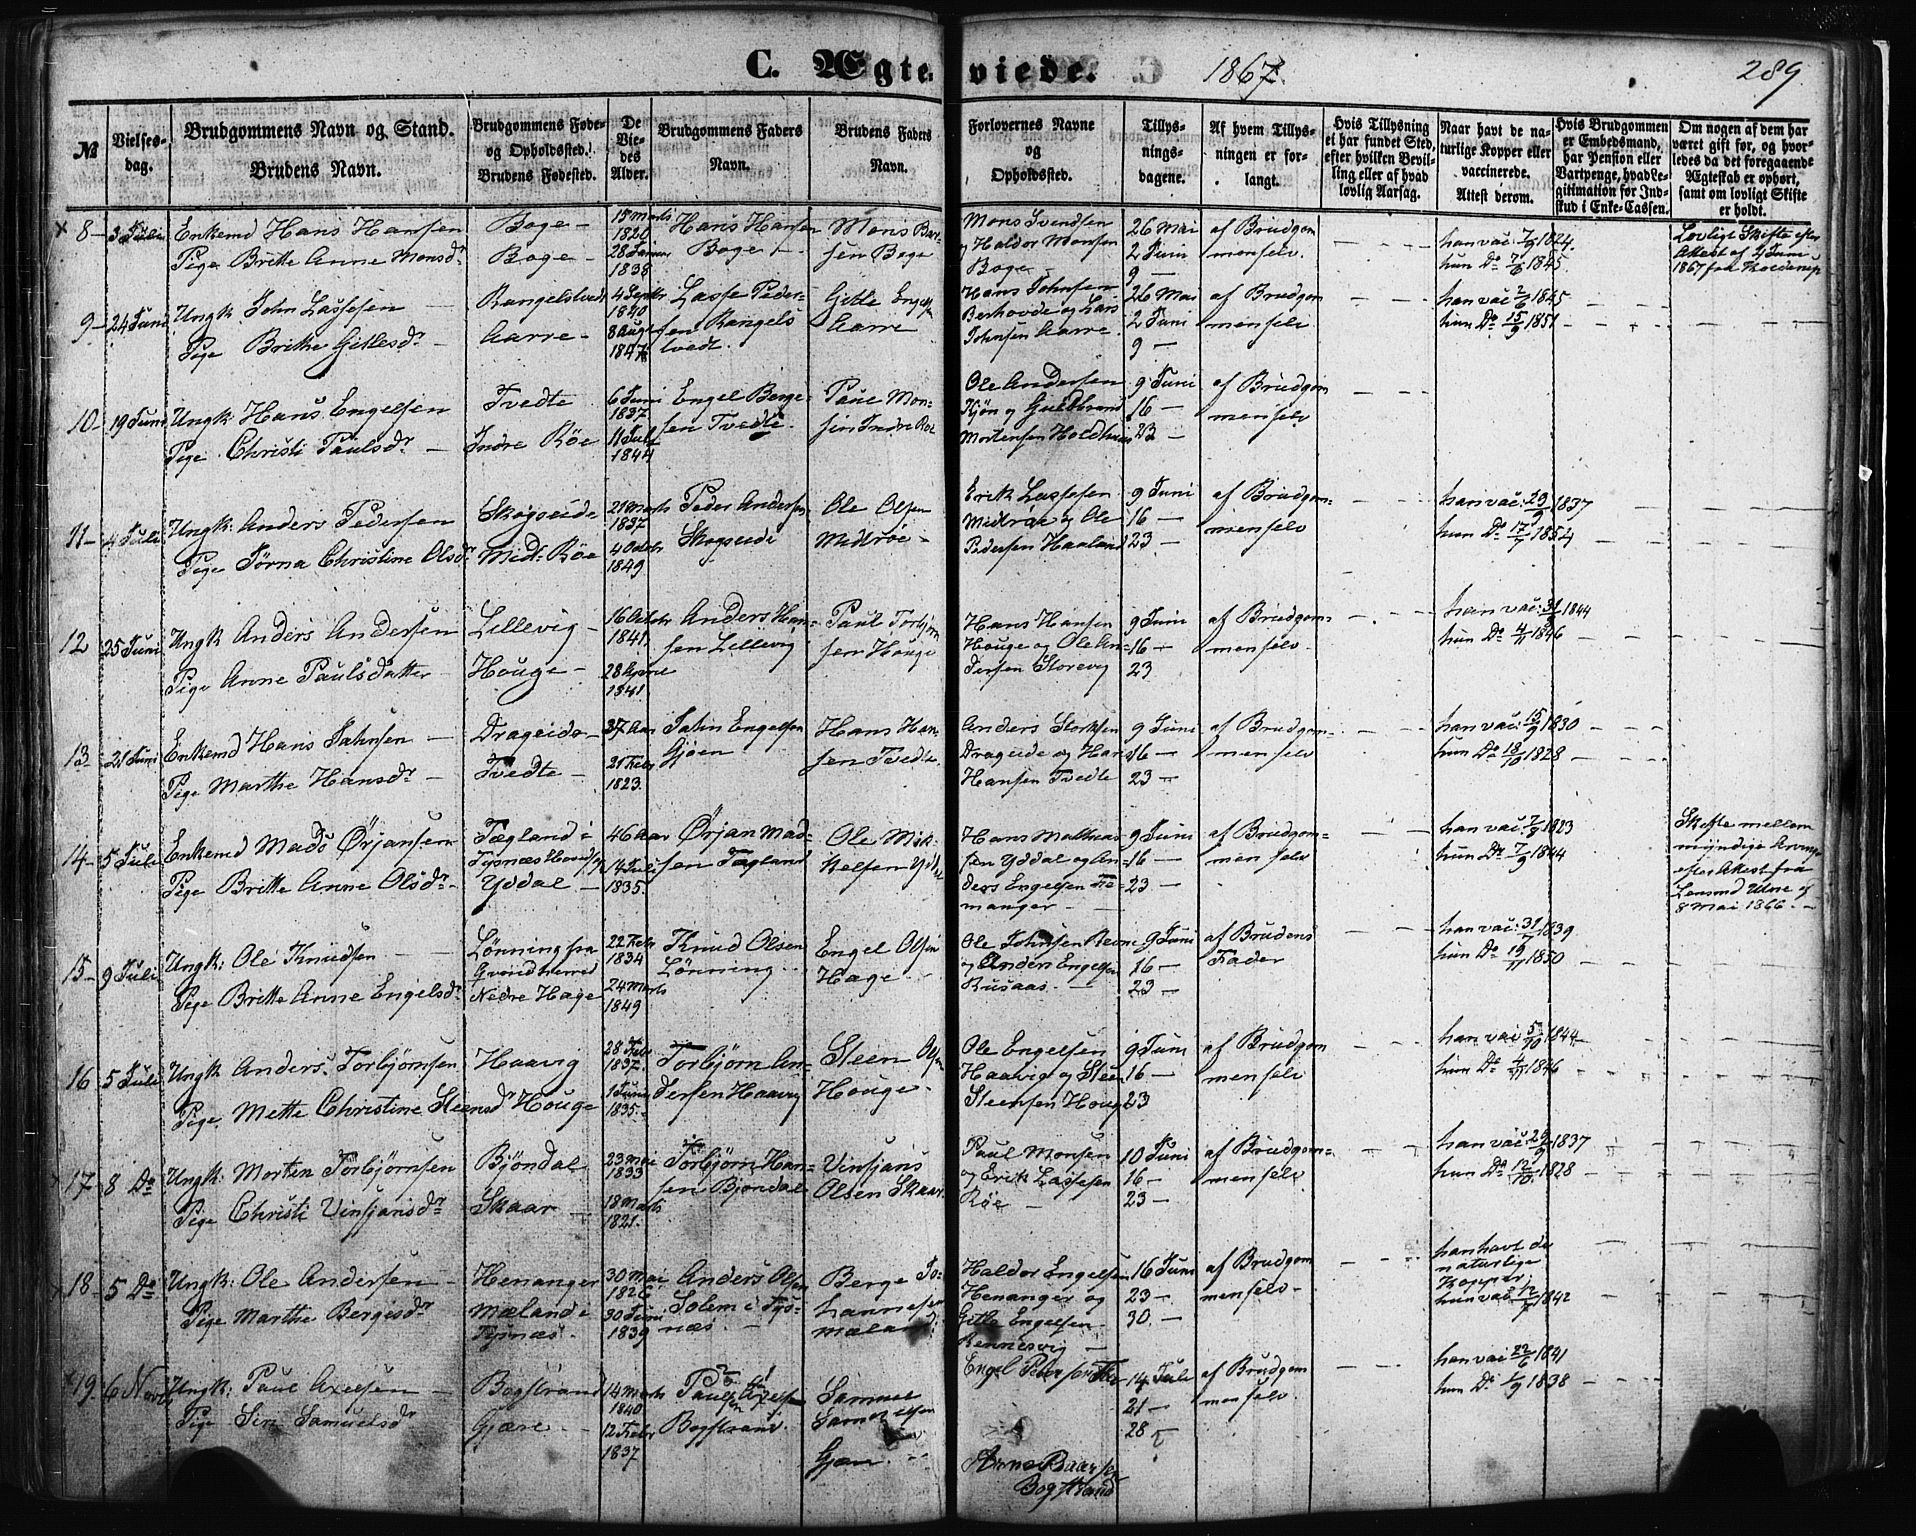 C. Ægteviede. 1867. 289
№
Vielsesdag.
Brudgommens Navn og Stand.
Brudens Navn.
Brudgommens Føde- og Opholdssted.
Brudens Fødested.
De Viedes Alder.
Brudgommens Faders Navn.
Brudens Faders Navn.
Forlovernes Navne og Opholdssted.
Tillysningsdagene.
Af hvem Tillysningen er forlangt.
Hvis Tillysning ei har fundet Sted, efter hvilken Bevilling eller af hvad lovlig Aarsag.
Naar havt de naturlige Kopper eller vaccinerede. Attest derom.
Hvis Brudgommen er Embedsmand, har Pension eller Vartpenge, hvad Legitimation for Indskud i Enke-Cassen.
Om nogen af dem har været gift før, og hvorledes da det foregaaende Ægteskab er ophørt, samt om lovligt Skifte er holdt.
8 - 3 Juli Enkemd Hans Hansen Boge - 15 Marts 1820 Hans Hansen Boge Mons
Pige Britte Anne Monsdr Boge - 28 1838 sen Boge
Mons Svendsen og Haldor Monsen Boge 26 Mai 2 Juni 9 - af Brudgommen selv. han vac 7/9 1824. hun Do 7/8 1845. Lovligt Skifte efter Attest af 4 Juni 1867 fra
9 - 24 Juni Ungk. John Lassesen Rangelstvedt 4 Septbr 1840 Lasse Pedersen Rangelstvedt. Gitle Aarre
Pige Brithe Gitlesdr - Aarre - 8 Aug 1847
Hans Johnsen Berhovde og Lars Johnsen Aarre 26 Mai 2 Juni 9 - af Brudgommen selv han vac 2/6 1845 hun Do 15/9 1851
10 - 19 Juni Ungk. Hans Engelsen Tvedte 6 Juni 1837 Engel Bergesen Tvedte. Paul Monsen Indre Røe
Pige Christi Paulsdr - Indre Røe 11 Juli 1844
Ole Andersen Kjøn og Guldbrand Mortensen Holdhuus 9 Juni 16 - 23 - af Brudgommen selv
11 - 4 Juli Ungk: Anders Pedersen Skogseide 21 Marts 1837 Peder Andersen Skogseide Ole Olsen Midtrøe -
Pige Jørna Christine Olsdr Midt: Røe 4 Octobr 1849
Erik Lassesen Midtrøe og Ole Pedersen Haaland 9 Juni 16 - 23 - af Brudgommen selv han vac: 29/9 1837 hun Do 17/7 1854
12 25 Juni Ungk Anders Andersen Lillevig - 16 Octobr 1841. Anders Hansen Lillevig Paul Torbjørnsen Houge
Pige Anne Paulsdatter Houge - 28 1841
Hans Hansen Houge og Ole Andersen Storevig 9 Juni 16 - 23 af Brudgommen selv. han vac: 1844 hun Do 4/11 1846
13 - 21 Juni Enkemd Hans Jahnsen - Drageide - 37 Aar Jahn Engelsen Gjøen Hans Hansen Tvedte.
Pige Marthe Hansdr - Tvedte - 21 Febr 1823.
Anders Drageide og Hans Hansen Tvedte 9 Juni 16 - 23 - af Brudgommen selv han vac: 15/9 1830 hun Do 18/10 1828
14 - 5 Juli Enkemd Mads Ørjansen Tægland i Tysnes 46 Aar Ørjan Madsen Tægland Ole Mikkelsen
Pige Britte Anne Olsdr - Yddal - 14 Juli 1835.
Hans Mathias sen Yddal og Anders Engelsen manger - 9 Juni 16 - 23 - af Brudgommen selv han vac: 7/9 1823 hun Do 7/9 1844 Skifte mellem myndige efter Attest fra Lensmd 8 Mai 1866. -
15 - 9 Juli Ungk: Ole Knudsen Lønning fra Qvindherred 22 Febr 1834 Knud Olsen Lønning Engel Olsen Hage
Pige Britte Anne Engelsdr Nedre Hage 24 Marts 1849
Ole Johnsen og Anders Engelsen Rusaas - 9 Juni 16 - 23 - af Brudens Fader han vac: 1839 hun Do 19/11 1850
16 5 Juli Ungk Anders Torbjørnsen Haavig 28 Febr 1837. Torbjørn Andersen Haavig Steen Olsen Houge
Pige Mette Christine Steensdr Houge 1 Juni 1835.
Ole Engelsen Haavig og Steen Steensen Houge 9 Juni 16 - 23 af Brudgommen selv han vac 5/10 1844 hun Do 4/11 1846
17 - 8 Do Ungk. Morten Torbjørnsen Bjøndal 23 Mai 1833 Torbjørn Hansen Bjøndal Vinsjans Olsen Skaar.
Pige Christi Vinsjansdr Skaar - 18 Marts 1821.
Paul Monsen og Erik Lassesen Røe - 10 Juni 16 - 23 - af Brudgommen selv. han vac: 29/9 1837 hun Do 12/10 1828
18 - 5 Do Ungk: Ole Andersen Henanger 30 Mai 1826 Anders Olsen Solem i Tysnæs. Berge Johannesen Mæland
Pige Marthe Bergesdr Mæland i Tysnæs. 30 Juni 1839
Haldor Engelsen Henanger og Gitle Engelsen Rennesvig - 16 Juni 23 - 30. - af Brudgommen selv - han havt de naturlige Kopper, hun vac 12/7 1842
19. 6 Novbr Ungk: Paul Axelsen Bogstrand 14 Marts 1840 Paul Axelsen Bogstrand. Samuel Samuelsen Gjære
Pige Siri Samuelsdr Gjære - 12 Febr 1837
Engel Arne Baarsen Bogstrand 14 Juli 21 - 28 af Brudgommen selv. han vac 22/6 1841 hun Do 1/9 1838